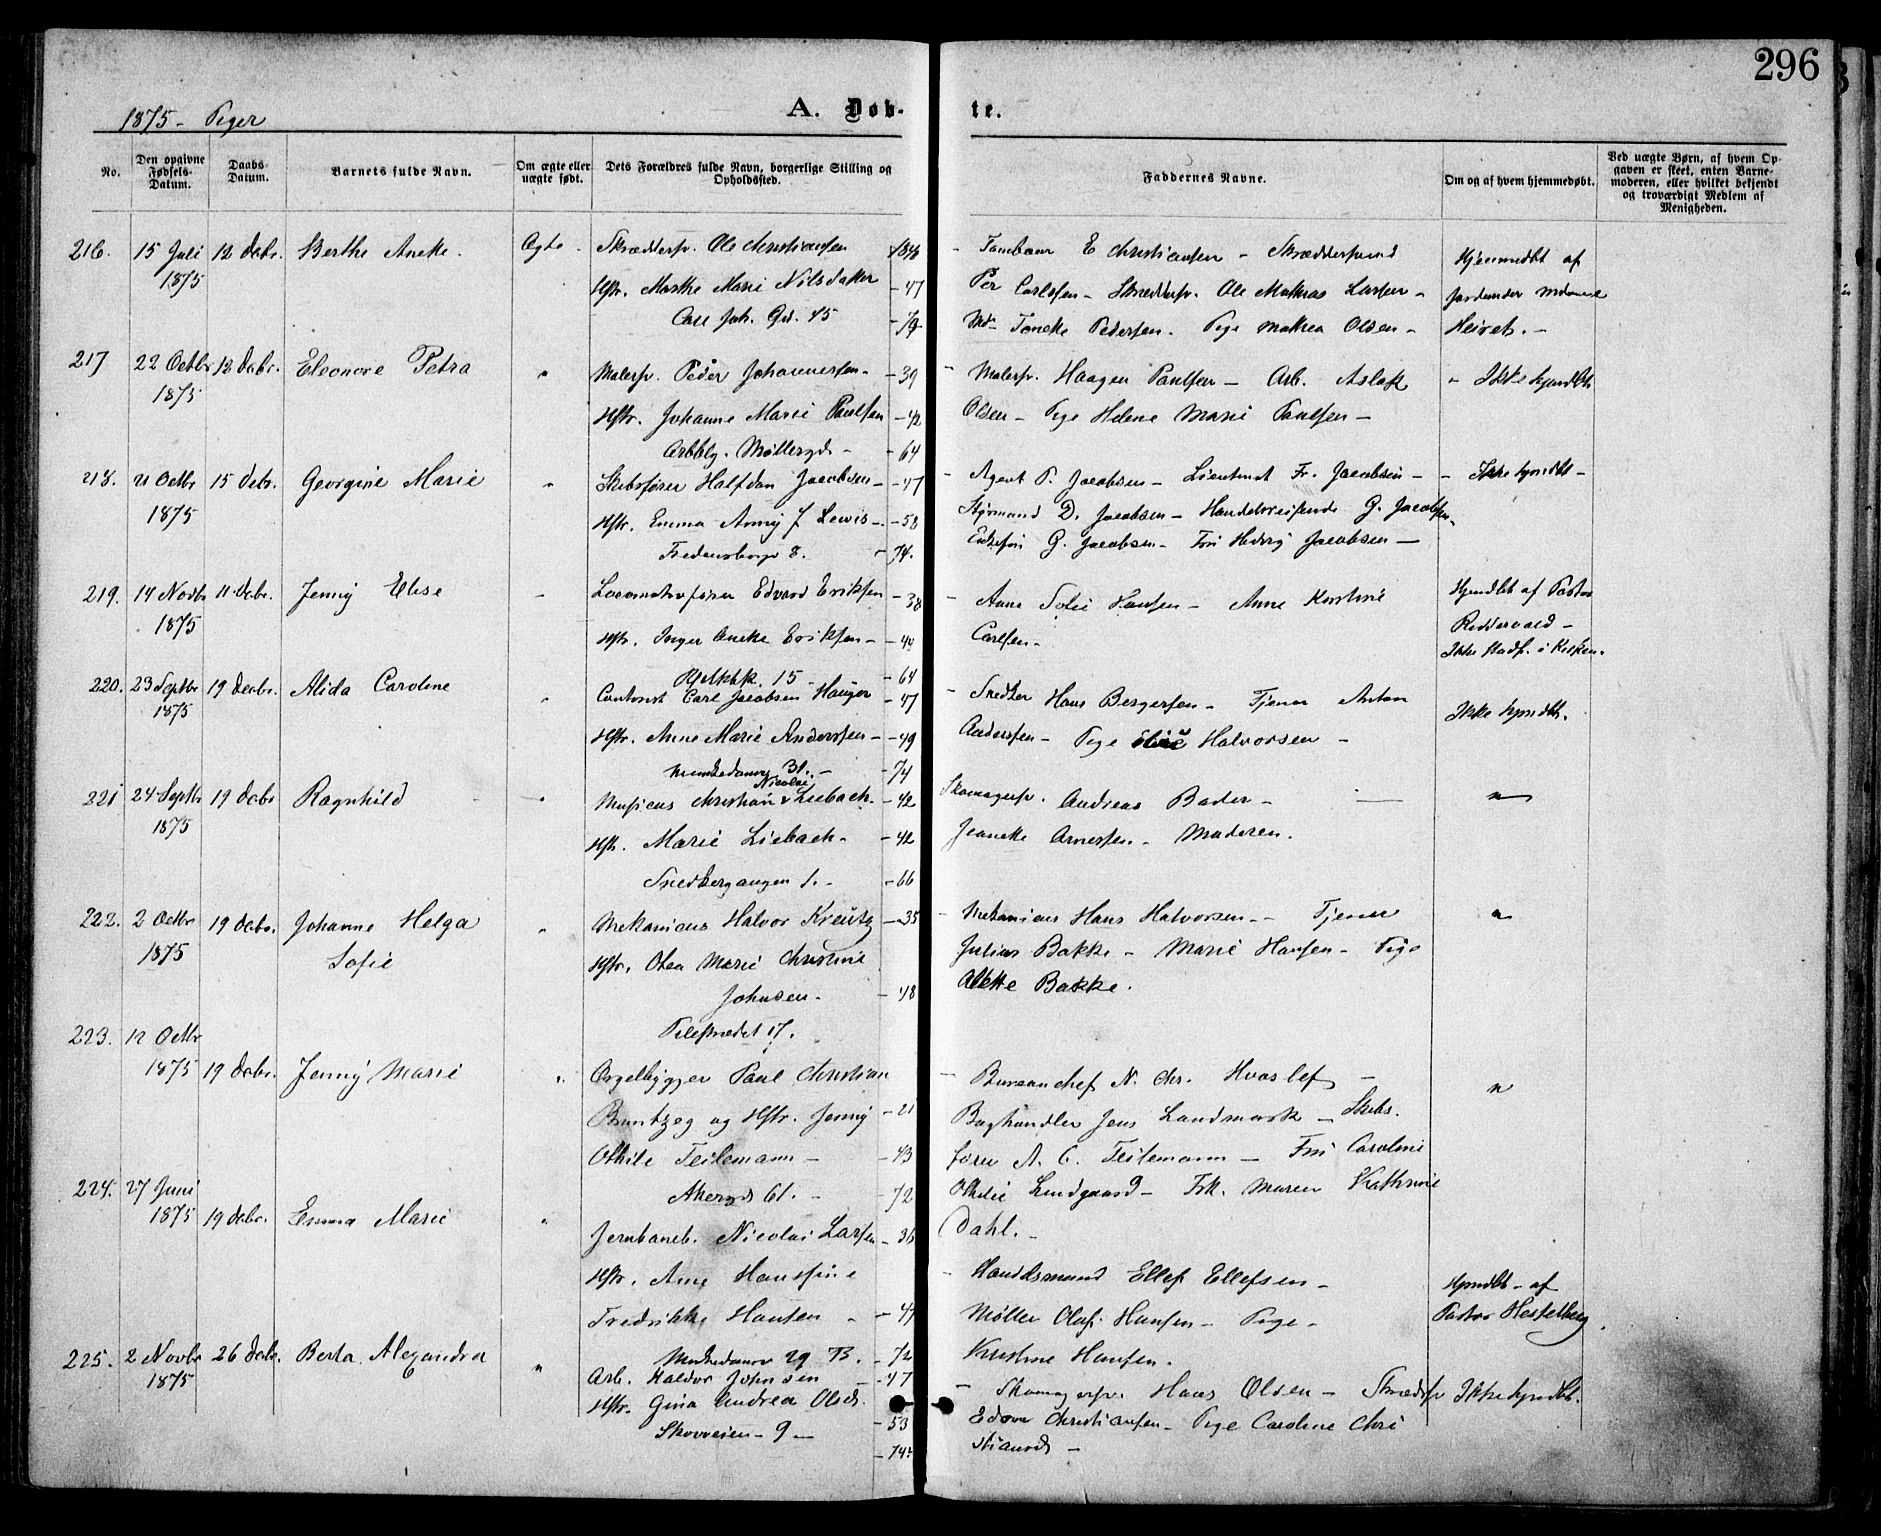 296
1875 - Piger
A. Døb-
te.
No.
Den opgivne Fødsels-Datum.
Daabs-Datum.
Barnets fulde Navn.
Om ægte eller uægte født.
Dets Forældres fulde Navn, borgerlige Stilling og Opholdssted.
Faddernes Navne.
Om og af hvem hjemmedøbt.
Ved uægte Børn, af hvem Op-
gaven er skeet, enten Barne-
moderen, eller hvilket bekjendt
og troværdigt Medlem af
Menigheden.
216. 15 Juli 12 Debr. Berthe Aneke. Ægte. Skræddersv. Ole Christiansen
1875
Hstr. Marthe Marie Nilsdatter - 47
Carl Joh. Gd. 45
E Christiansen -
Per Carlsen - Skræddersv. Ole Mathias Larsen -
Pedersen. Pige Mathea Olsen -
Hjemmedbt af
Jordemoder
217 22 Octbr 12 Debr. Eleonore Petra " Malersv. Peder Johannesen - 39
1875
Hstr. Johanne Marie Paulsen - 42
Møllergd. - - 64
- Malersv. Haagen Paulsen - Arb. Aslak
Olsen - Pige Helene Marie Paulsen -
- Ikke hjmdbt
218. 21 Octbr 15 Debr. Georgine Marie " Skibsfører Halfdan Jacobsen - 47
1875
Hstr. Emma Anny J Lewis - 58
Fredensborgv 8. - 74.
- Agent P. Jacobsen - Lieutnant Fr. Jacobsen -
Styrmand D. Jacobsen - Handelsreisende G. Jacobsen
Enkefru G. Jacobsen - Fru Hedvig Jacobsen -
- Ikke hjmdbt -
219. 14 Novbr 11 Debr. Jenny Elise " Locomotivfører Edvard Eriksen - 38
1875
Hstr. Inger Aneke Eriksen - - 40
15 - 64
- Anne Sofie Hansen - Anne Kristine
Carlsen -
Hjmdbt af Pastor
Riddervold -
Ikke Stadf. i Kirken.
220. 23 Septbr 19 Decbr. Alida Caroline " Contorist Carl Jacobsen Hauger - 47
1875
Hstr. Anne Marie Anderssen - - 49
Munkedamsv 31. - - 74
- Snedker Hans Bergersen - Tjener Anton
Anderssen - Pige Halvorsen -
Ikke hjmdbt.
221 24 Septbr 19 Debr Ragnhild " Musicus Christian Nicolai Liebach. - 42
1875
Hstr. Marie Liebach - - 42
Snedkergangen 1. - - 66
Skomagersv. Andreas Bader - "
Jeaneke Arnessen - Moderen.
222. 2 Octbr 19 Debr. Johanne Helga " Mekanicus Halvor Kreutz - 35
1875 Sofie
Hstr. Olea Marie Christine
Johnsen. - 48
Pilestrædet 17.
- Mekanicus Hans Halvorsen - Tjener "
Julius Bakke - Marie Hansen - Pige
Alette Bakke.
223. 12 Octbr
1875 19 Debr. Jenny Marie " Orgelbygger Paul Christian
Brantzeg og Hstr. Jenny - 21
Othile Teilemann - - 43
Akersgd 61. - - 72
- Bureauchef N. Chr. Hvoslef - "
Boghandler Jens Landmark - Skibs-
fører A. C. Teilemann - Fru Caroline
Othilie Lundgaard - Frk. Maren Kathrine
Dahl. -
224. 27 Juni
1875 19 Debr. Emma Marie " Jernbaneb. Nicolai Larsen - 36
Hstr. Ane Hansine
Fredrikke Hansen - - 47
Munkedamsv 29 B. - 72
- Handelsmand Ellef Ellefsen -
Møller Olaf Hansen - Pige -
Kristine Hansen.
Hjmdbt - af
Pastor Hesselberg.
225. 2 Novbr 26 Debr. Berta Alexandra " Arb. Haldor Johnsen - 47
1875
Hstr. Gina Andrea Olsdr. - 53
Skovveien - 9 - - 74.
- Skomagersv. Hans Olsen -
Edvar Christiansen - Pige Caroline Chri
stiansdr -
Ikke hjmdbt.